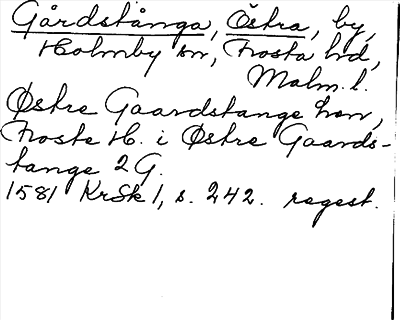 Gårdstånga, Östra, by,
Holmby sn, Frosta hd,
Malm. l.
Østre Gaardstange Son,
Froste H. i Østre Gaards-
tange 2 G.
1581 KrSk 1, s. 242. regest.